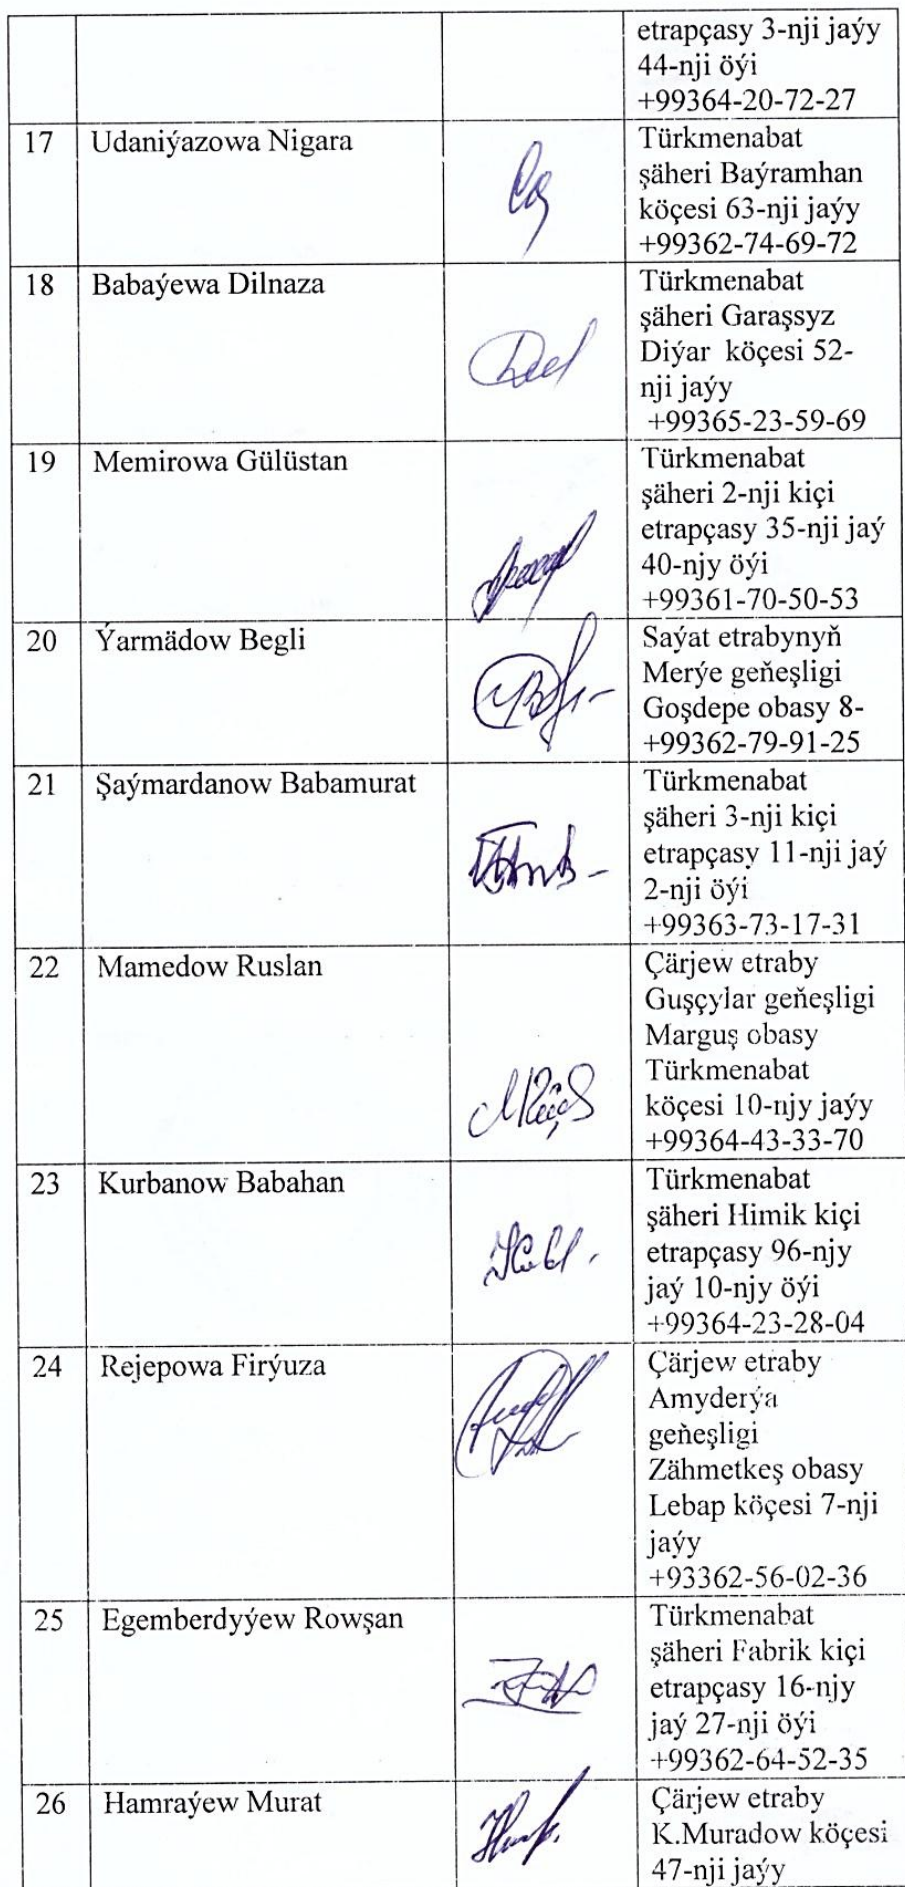 etrapçasy 3-nji jaýy
44-nji öýi
+99364-20-72-27
17 Udaniýazowa Nigara Türkmenabat
şäheri Baýramhan
köçesi 63-nji jaýy
+99362-74-69-72
18 Babaýewa Dilnaza Türkmenabat
şäheri Garaşsyz
Diýar köçesi 52-
nji jaýy
+99365-23-59-69
19 Memirowa Gülüstan Türkmenabat
şäheri 2-nji kiçi
etrapçasy 35-nji jaý
40-njy öýi
+99361-70-50-53
20 Ýarmädow Begli Saýat etrabynyň
Merýe geňeşligi
Goşdepe obasy 8-
+99362-79-91-25
21 Şaýmardanow Babamurat Türkmenabat
şäheri 3-nji kiçi
etrapçasy 11-nji jaý
2-nji öýi
+99363-73-17-31
22 Mamedow Ruslan Çärjew etraby
Guşçylar geňeşligi
Marguş obasy
Türkmenabat
köçesi 10-njy jaýy
+99364-43-33-70
23 Kurbanow Babahan Türkmenabat
şäheri Himik kiçi
etrapçasy 96-njy
jaý 10-njy öýi
+99364-23-28-04
24 Rejepowa Firýuza Çärjew etraby
Amyderýa
geňeşligi
Zähmetkeş obasy
Lebap köçesi 7-nji
jaýy
+93362-56-02-36
25 Egemberdyýew Rowşan Türkmenabat
şäheri Fabrik kiçi
etrapçasy 16-njy
jaý 27-nji öýi
+99362-64-52-35
26 Hamraýew Murat Çärjew etraby
K.Muradow köçesi
47-nji jaýy